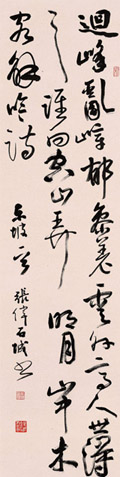 迴峰亂嶂郁參差雲外高人世得
知誰向空山弄明月山中木
客解吟詩
東坡
張偉石城書